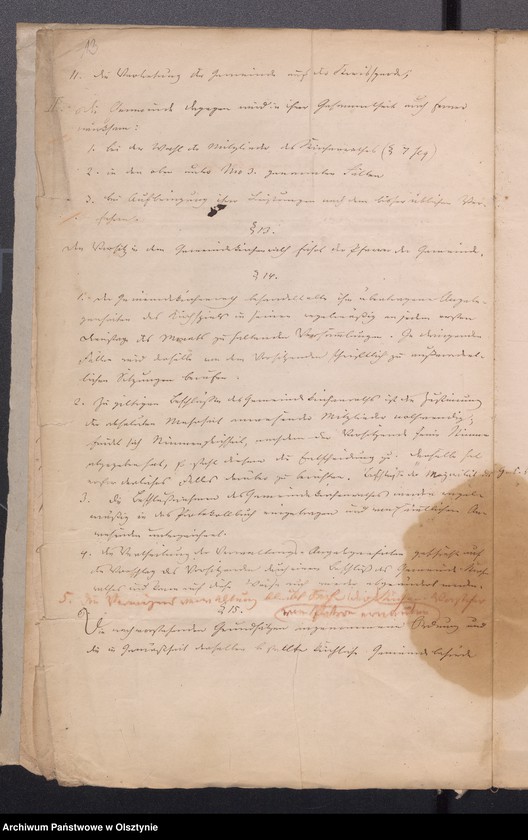 12
11. die Vertretung der Gemeinde auf der Kreissynode,
II. die Gemeinde dagegen wird in ihrer Gesammtheit auch ferner
wirksam:
1. bei der Wahl der Mitglieder des Kirchenrathes (§ 7 flg)
2. in den oben No 3. genannten Fällen
3. bei Aufbringung ihrer Leistungen nach dem bisher üblichen Ver-
fahren.
§ 13.
Den Vorsitz in dem Gemeindekirchenrath führt der Pfarrer der Gemeinde.
§ 14.
1. der Gemeindekirchenrath behandelt alle ihm übertragenen Angele-
genheiten des Kirchspiels in seinen regelmäßig an jedem ersten
Dienstag des Monats zu haltenden Versammlungen. In dringenden
Fällen wird derselbe von dem Vorsitzenden schriftlich zu außerordent-
lichen Sitzungen berufen.
2. Zu gültigen Beschlüssen des Gemeindekirchenraths ist die Zustimmung
der absoluten Mehrheit anwesender Mitglieder nothwendig;
findet sich Stimmengleichheit, nachdem der Vorsitzende seine Stimme
abgegeben hat, so steht diesem die Entscheidung zu. derselbe hat
erforderlichen Falles darüber zu berichten. Beschlüsse der Majorität
3. die Beschlußnahmen des Gemeindekirchenrathes werden regel-
mäßig in das Protokollbuch eingetragen und von sämmtlichen An-
wesenden unterzeichnet.
4. die Vertheilung der Verwaltungs-Angelegenheiten geschieht auf
den Vorschlag des Vorsitzenden durch einen Beschluß des Gemeinde Kirchen-
rathes und kann auf diese Weise auch wieder abgeändert werden.
5. Die Vermögensverwaltung bleibt Sache der Kirchen Vorsteher
vom Patron
§ 15.
Die nach vorstehenden Grundsätzen angenommene Ordnung und
die in Gemäßheit derselben bestellte kirchliche Gemeinde behörde
Archiwum Państwowe w Olsztynie